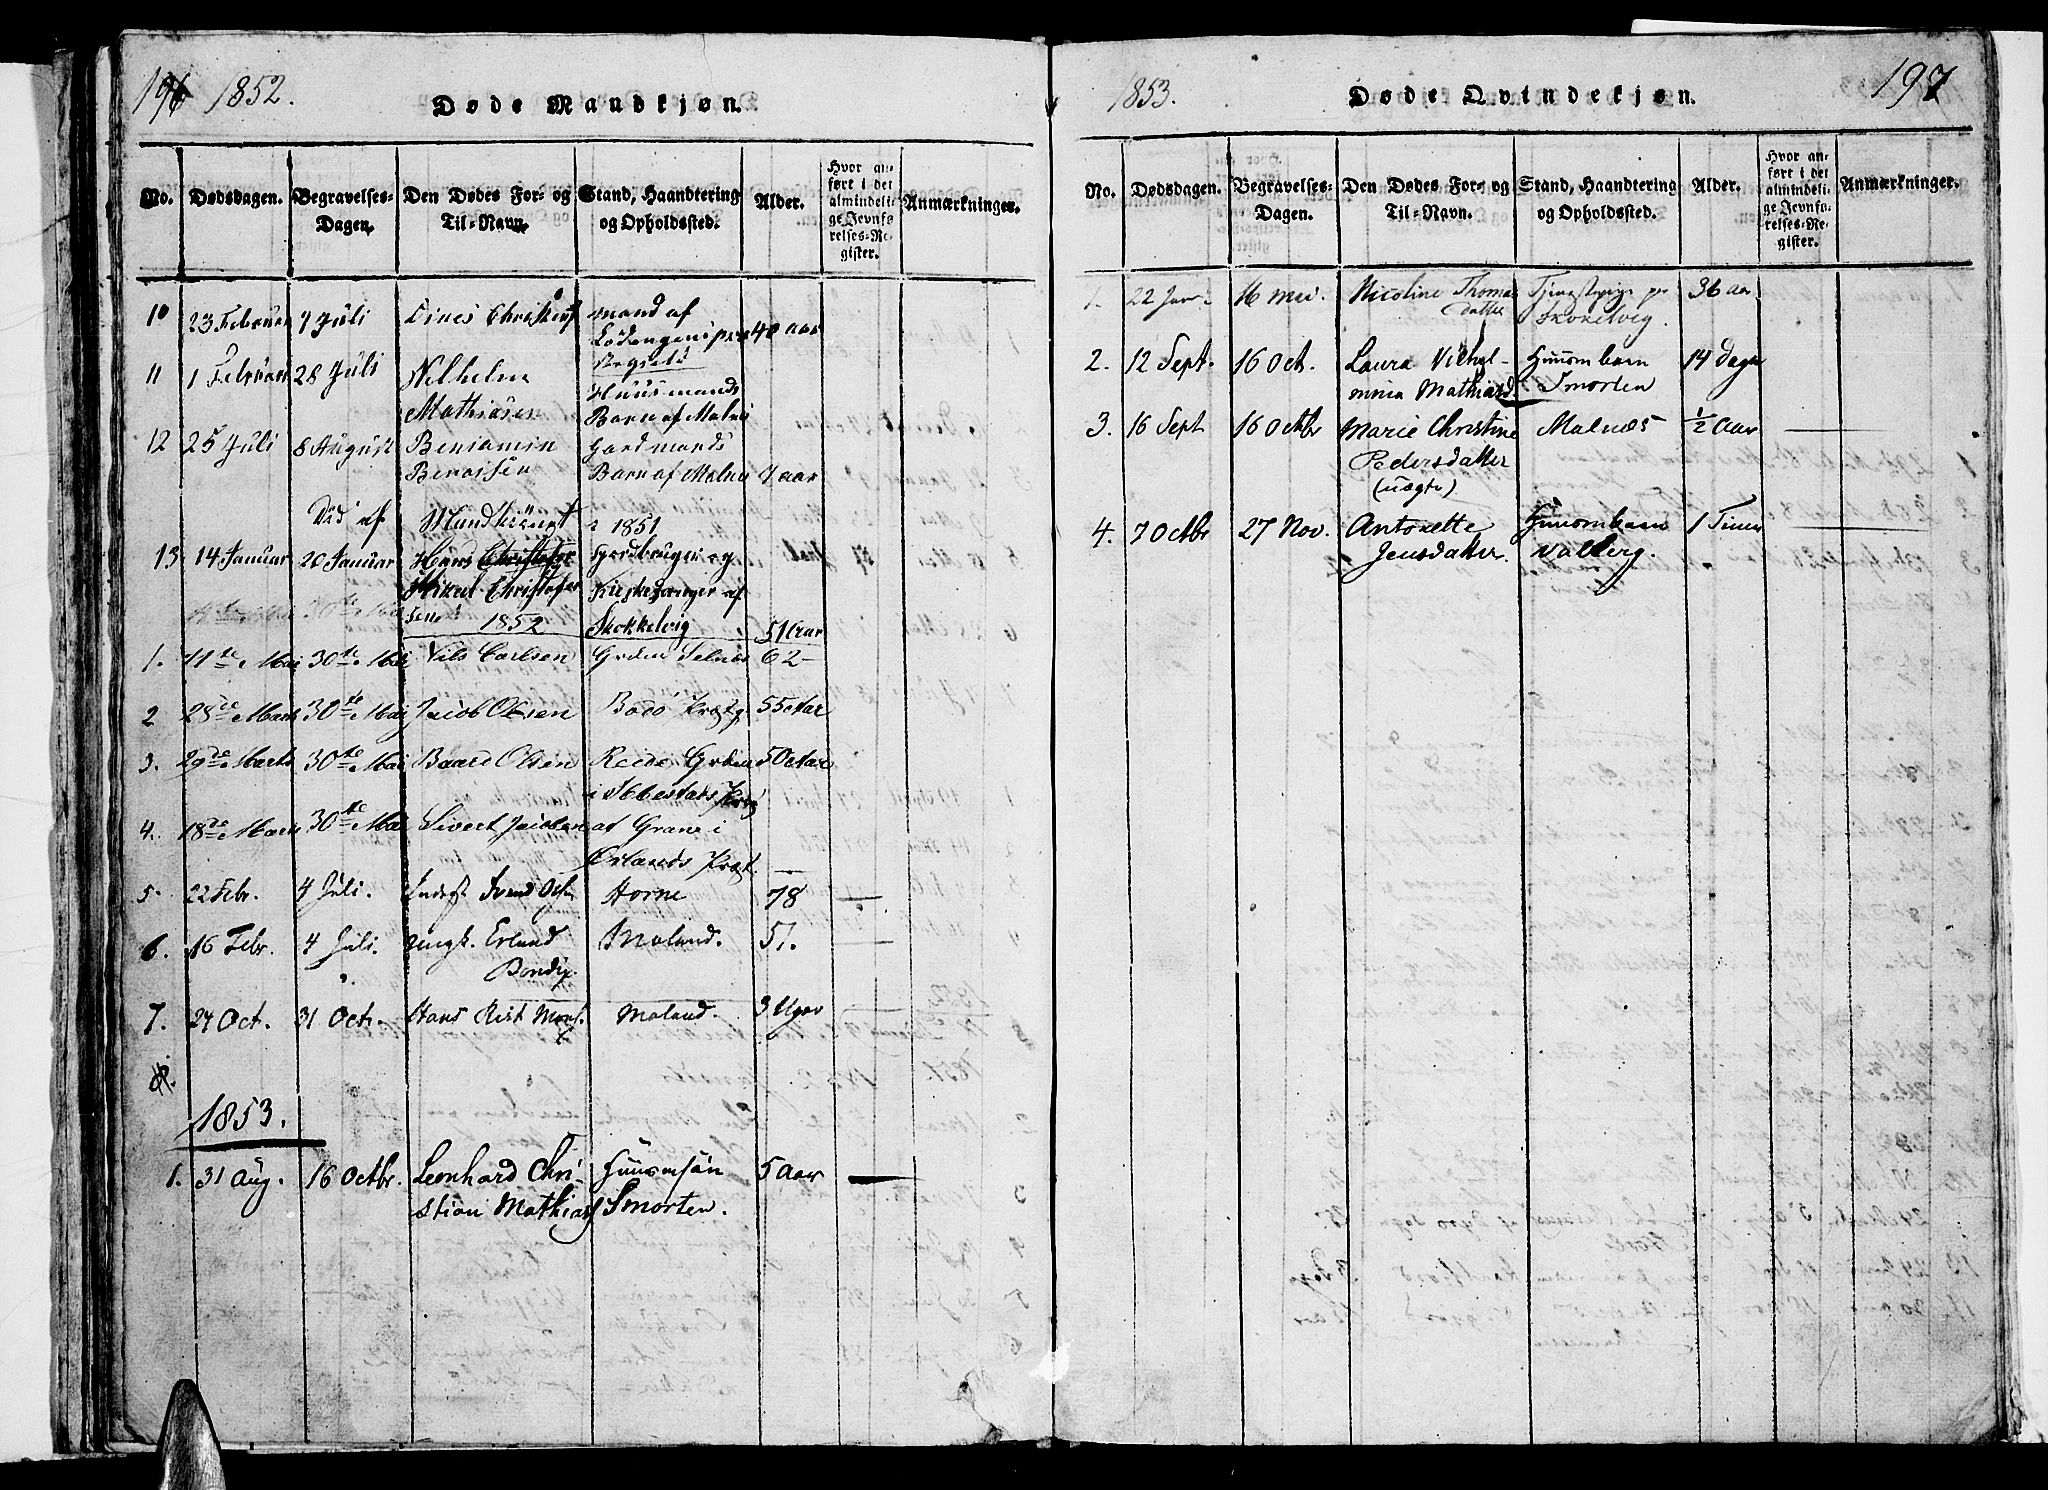 196 1852.
Døde Mandkjøn.
No. Dødsdagen. Begravelses-Dagen. Den Dødes For- og Til-Navn. Stand, Haandtering og Opholdssted. Alder. Hvor anført i det almindelige Jevnførelses-Register. Anmærkninger.
10 23 Februar 7 Juli Dines mand af 40 aar
Lødangens
11 1 Februar 28 Juli Vilhelm Huusmands
Mathiasen Barn af Malnes
12 25 Juli 8 August Benjamin Gardmands
Barn af Malnes 7 aar
Død af 1851
13 14 Januar 20 Januar Hans Christofer Jordbruger og
Mikal Christofer Kirkesanger af
sen 1852 Skokkelvig 51 aar
1. 11te Mai 30te Mai Nils Carlsen Grdm Selnes 62 –
2 28de Marts 30te Mai Jacob Olsen Bodø Præstg 55 Aar
3. 29de Marts 30te Mai Baard Olsen Grdm 50 Aar
i Ibbestads Præstg
4. 18de Marts 30te Mai Sivert Jacobsen af Grane i
Ørlands Præst. —
5. 22 Febr. 4 Juli. Svend Horne 78 —
6. 16 Febr. 4 Juli. Ungk. Erland Moland. 51. —
" Bendix.
7. 24 Oct. 31 Octr. Hans Moland. 3 Uger —
1853.
1. 31 Aug. 16 Octbr. Leonhard Chri- Huusmsøn 5 Aar —
stian Mathias Smorten.
1853. 197
Døde Qvindekjøn.
No. Dødsdagen. Begravelses-Dagen. Den Dødes For- og Til-Navn. Stand, Haandtering og Opholdssted. Alder. Hvor anført i det almindelige Jevnførelses-Register. Anmærkninger.
1. 22 Jan. 16 mai. Nicoline Thomas Tjenestepige paa 36 aar
datter Skokelvig.
2. 12 Sept. 16 Oct. Laura Vilhel- Huusm barn 14 Dage
mina Mathiasd. Smorten
3. 16 Sept 16 Octbr Marie Christine Malnæs ½ Aar —
Pedersdatter
(uægte)
4. 7 Octbr 27 Nov. Antonette Huusm barn 1 Time —
Jensdatter. Valberg.